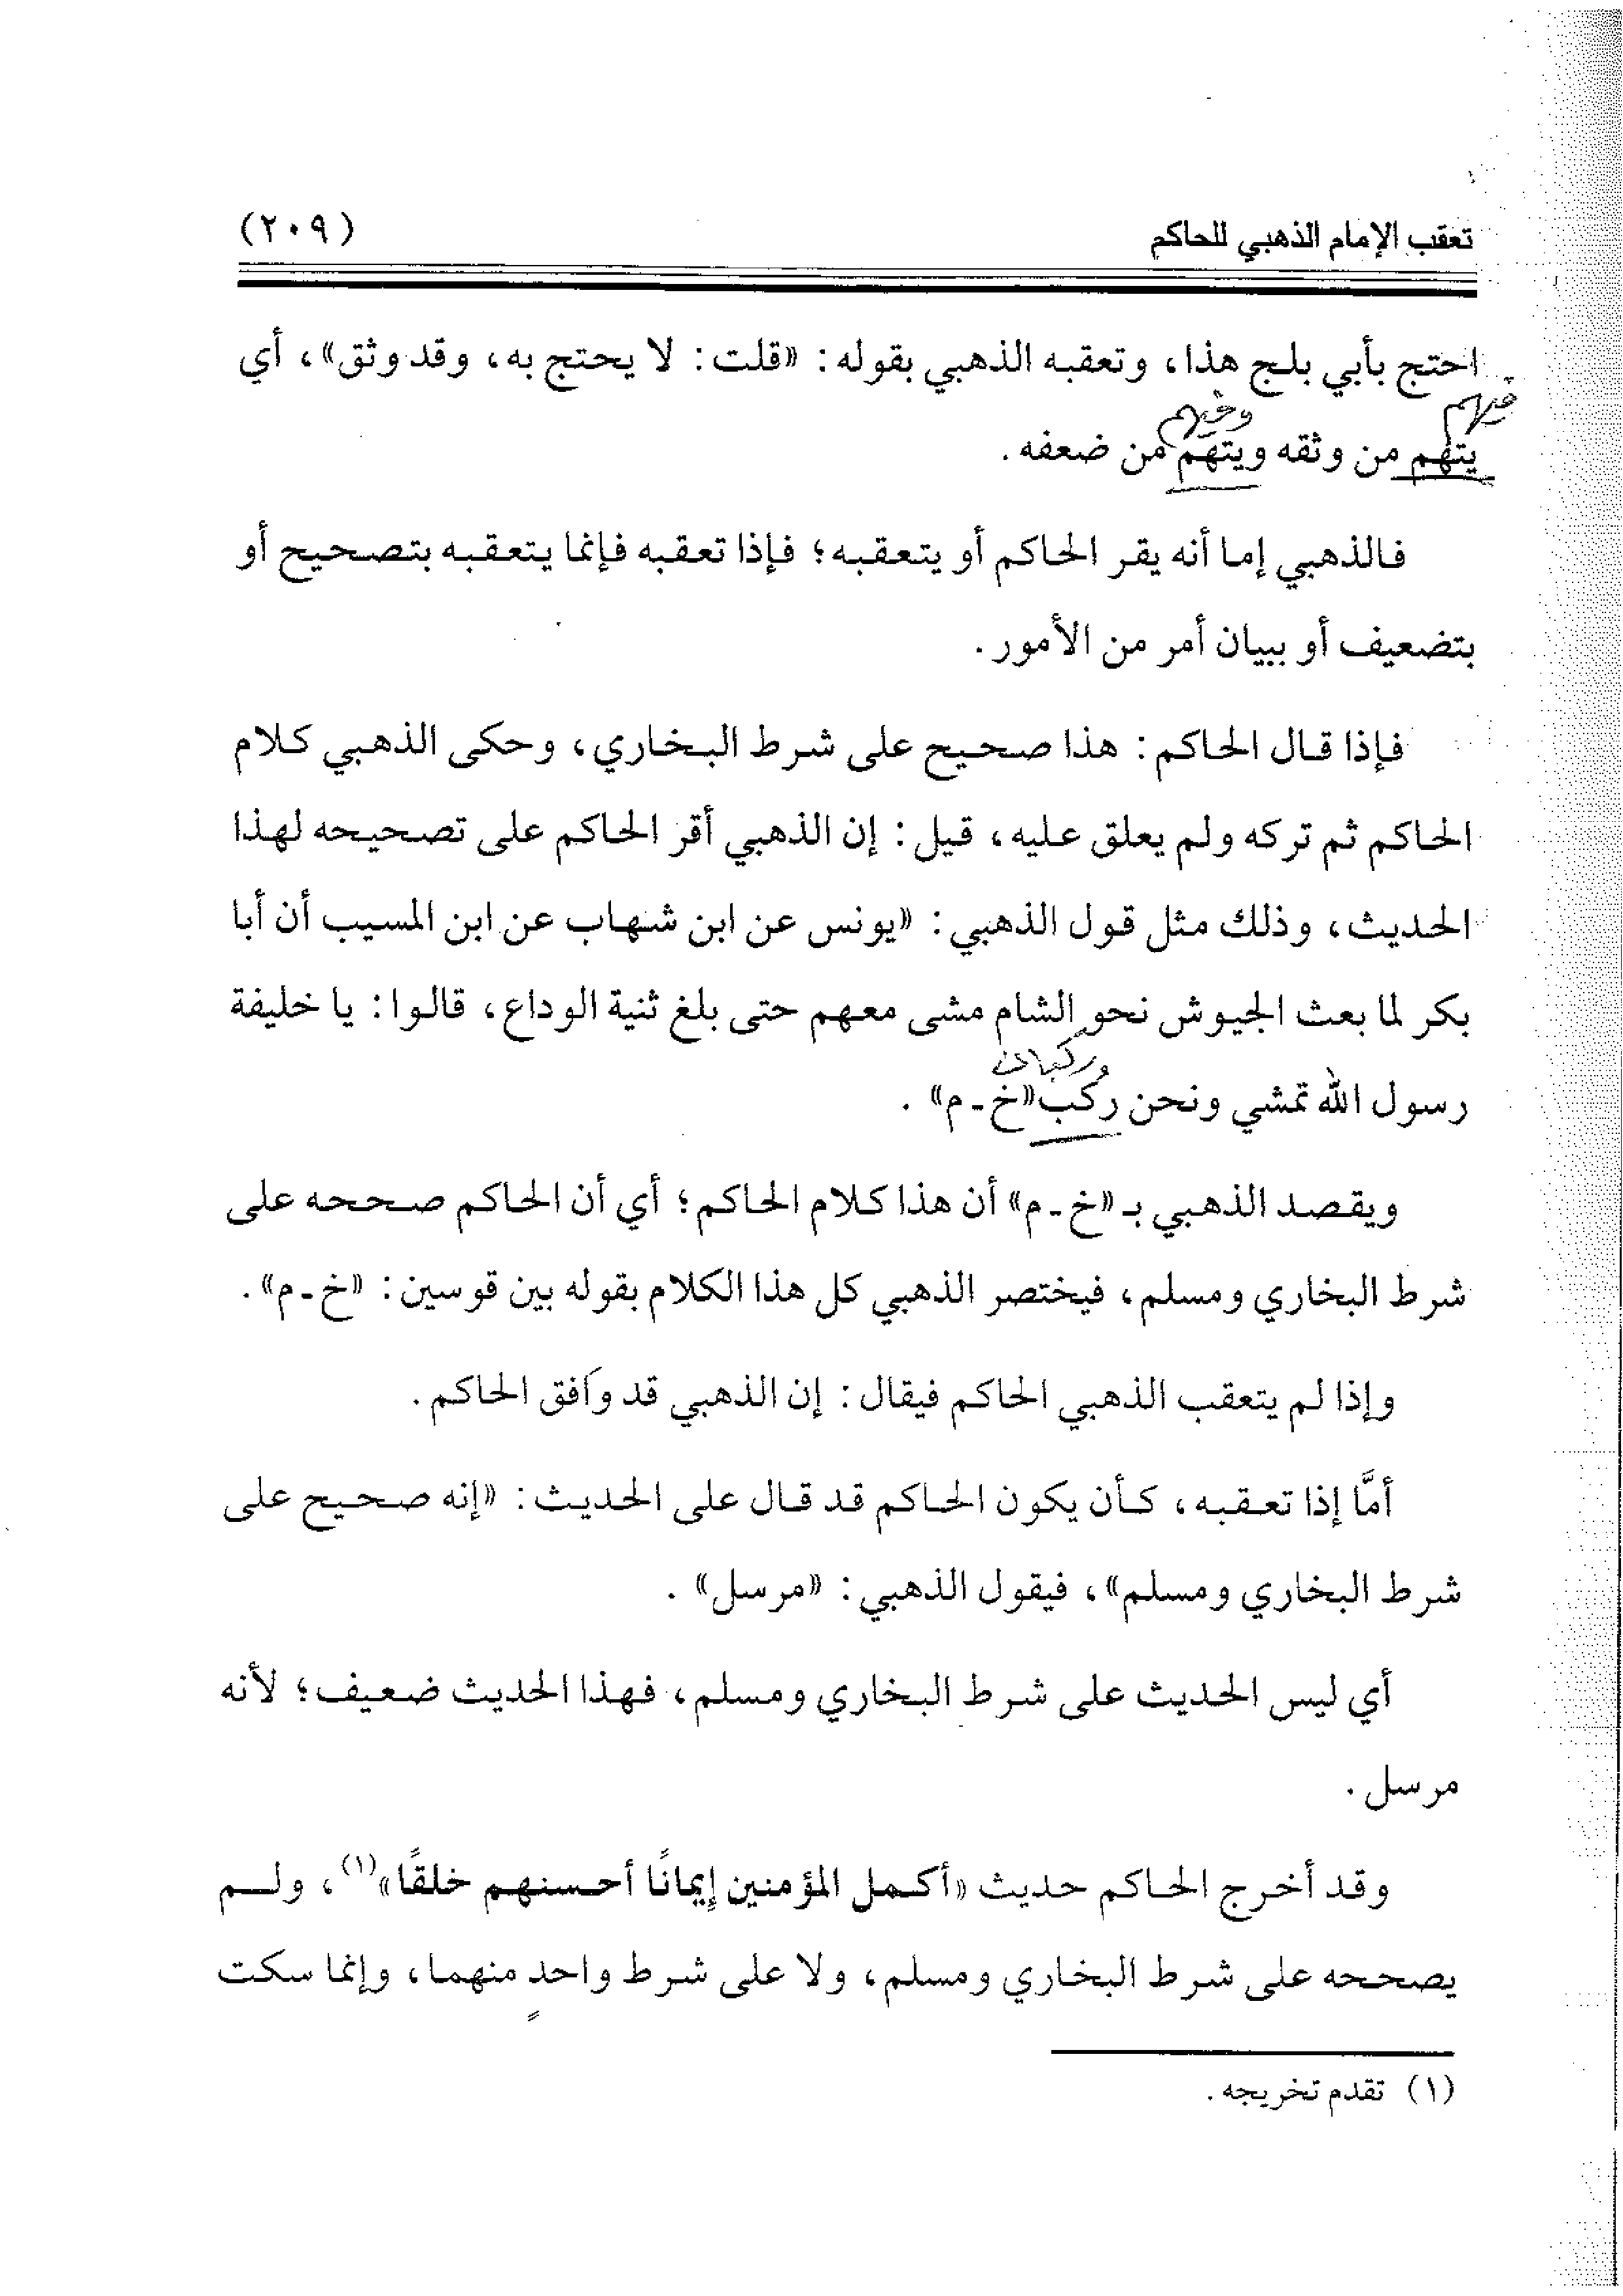 تعقب الإمام الذهبي للحاكم (٢٠٩)
احتج بأبي بلج هذا، وتعقبه الذهبي بقوله: «قلت: لا يحتج به، وقد وثق»، أي
فيهم وفيهم
يتهم من وثقه ويتهم من ضعفه.
فالذهبي إما أنه يقر الحاكم أو يتعقبه؛ فإذا تعقبه فإنما يتعقبه بتصحيح أو
بتضعيف أو ببيان أمر من الأمور.
فإذا قال الحاكم: هذا صحيح على شرط البخاري، وحكى الذهبي كلام
الحاكم ثم تركه ولم يعلق عليه، قيل: إن الذهبي أقر الحاكم على تصحيحه لهذا
الحديث، وذلك مثل قول الذهبي: «يونس عن ابن شهاب عن ابن المسيب أن أبا
بكر لما بعث الجيوش نحو الشام مشى معهم حتى بلغ ثنية الوداع، قالوا: يا خليفة
وركبان
رسول الله تمشي ونحن ركب«خ ـ م» .
ويقصد الذهبي بـ «خ ـ م» أن هذا كلام الحاكم؛ أي أن الحاكم صححه على
شرط البخاري ومسلم، فيختصر الذهبي كل هذا الكلام بقوله بين قوسين: «خ ـ م» .
وإذا لم يتعقب الذهبي الحاكم فيقال: إن الذهبي قد وافق الحاكم.
أمَّا إذا تعقبه، كأن يكون الحاكم قد قال على الحديث: «إنه صحيح على
شرط البخاري ومسلم»، فيقول الذهبي: «مرسل» .
أي ليس الحديث على شرط البخاري ومسلم، فهذا الحديث ضعيف؛ لأنه
مرسل.
وقد أخرج الحاكم حديث «أكمل المؤمنين إيمانًا أحسنهم خلقًا»(١)، ولم
يصححه على شرط البخاري ومسلم، ولا على شرط واحدٍ منهما، وإنما سكت
(١) تقدم تخريجه.